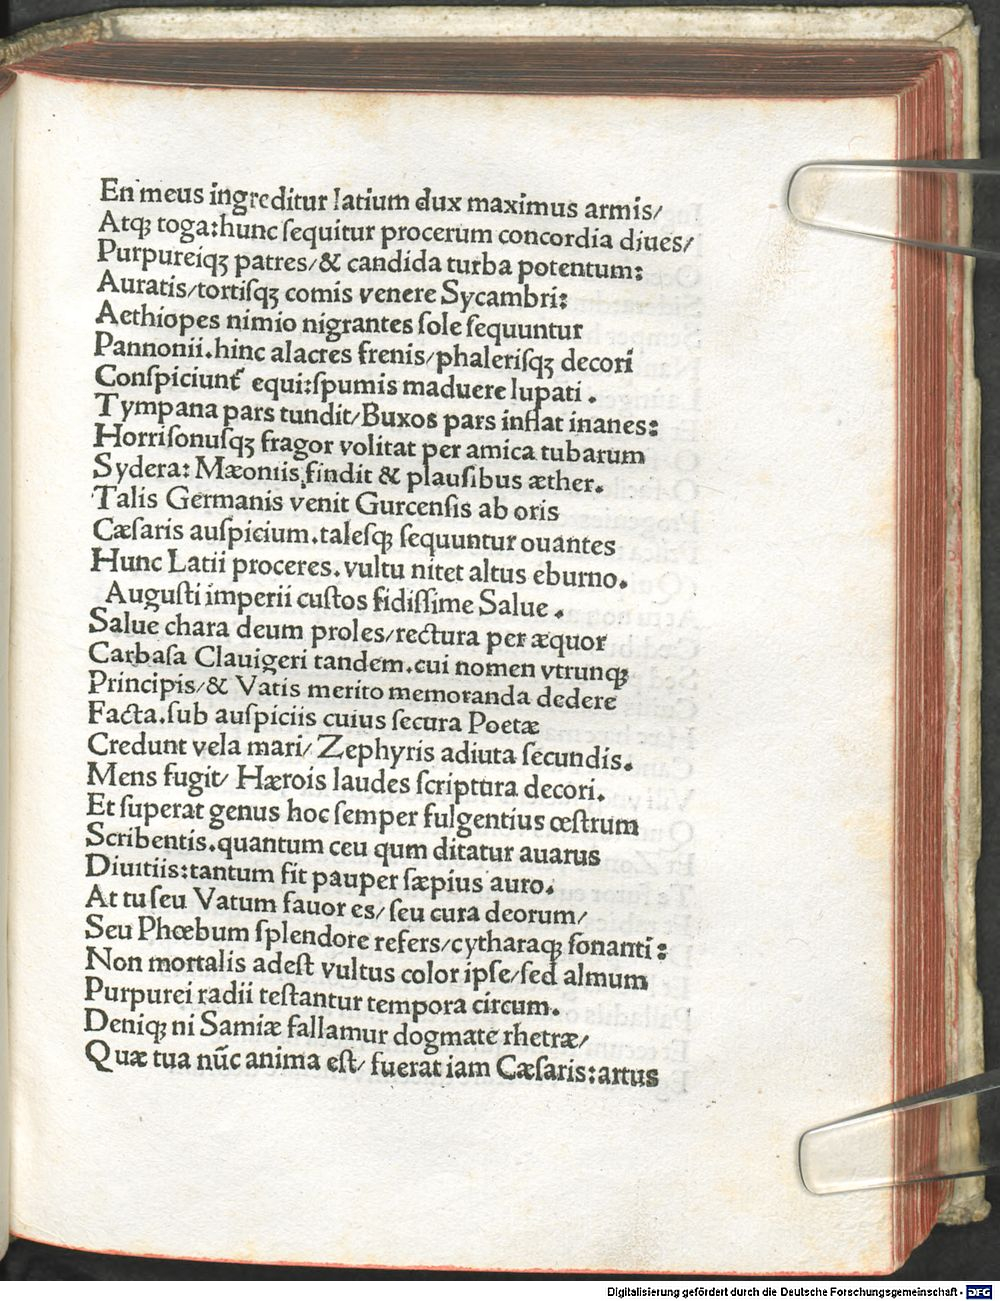 En meus ingreditur latium dux maximus armis/
Atqꝫ toga:hunc ſequitur procerum concordia diues/
Purpureiqꝫ patres/& candida turba potentum:
Auratis/tortiſqꝫ comis venere Sycambri:
Aethiopes nimio nigrantes ſole ſequuntur
Pannonii.hinc alacres frenis/phaleriſqꝫ decori
Conſpiciunt᷑ equi:ſpumis maduere lupati .
Tympana pars tundit/Buxos pars inflat inanes:
Horriſonuſqꝫ fragor volitat per amica tubarum
Sydera: Mæoniis findit & plauſibus æther.
Talis Germanis venit Gurcenſis ab oris
Cæſaris auſpicium.taleſqꝫ ſequuntur ouantes
Hunc Latii proceres.vultu nitet altus eburno.
Auguſti imperii cuſtos fidiſſime Salue .
Salue chara deum proles/rectura per æquor
Carbaſa Clauigeri tandem.cui nomen vtrunqꝫ
Principis/& Vatis merito memoranda dedere
Facta.ſub auſpiciis cuius ſecura Poetæ
Credunt vela mari/ Zephyris adiuta ſecundis.
Mens fugit/ Hærois laudes ſcriptura decori.
Et ſuperat genus hoc ſemper fulgentius œſtrum
Scribentis.quantum ceu qum ditatur auarus
Diuitiis:tantum fit pauper ſæpius auro.
At tu ſeu Vatum fauor es/ ſeu cura deorum/
Seu Phœbum ſplendore refers/cytharaqꝫ ſonanti:
Non mortalis adeſt vultus color ipſe/ſed almum
Purpurei radii teſtantur tempora circum.
Deniqꝫ ni Samiæ fallamur dogmate rhetræ/
Quæ tua nūc anima eſt/ fuerat iam Cæſaris:artus
Digitalisierung gefördert durch die Deutsche Forschungsgemeinschaft - DFG